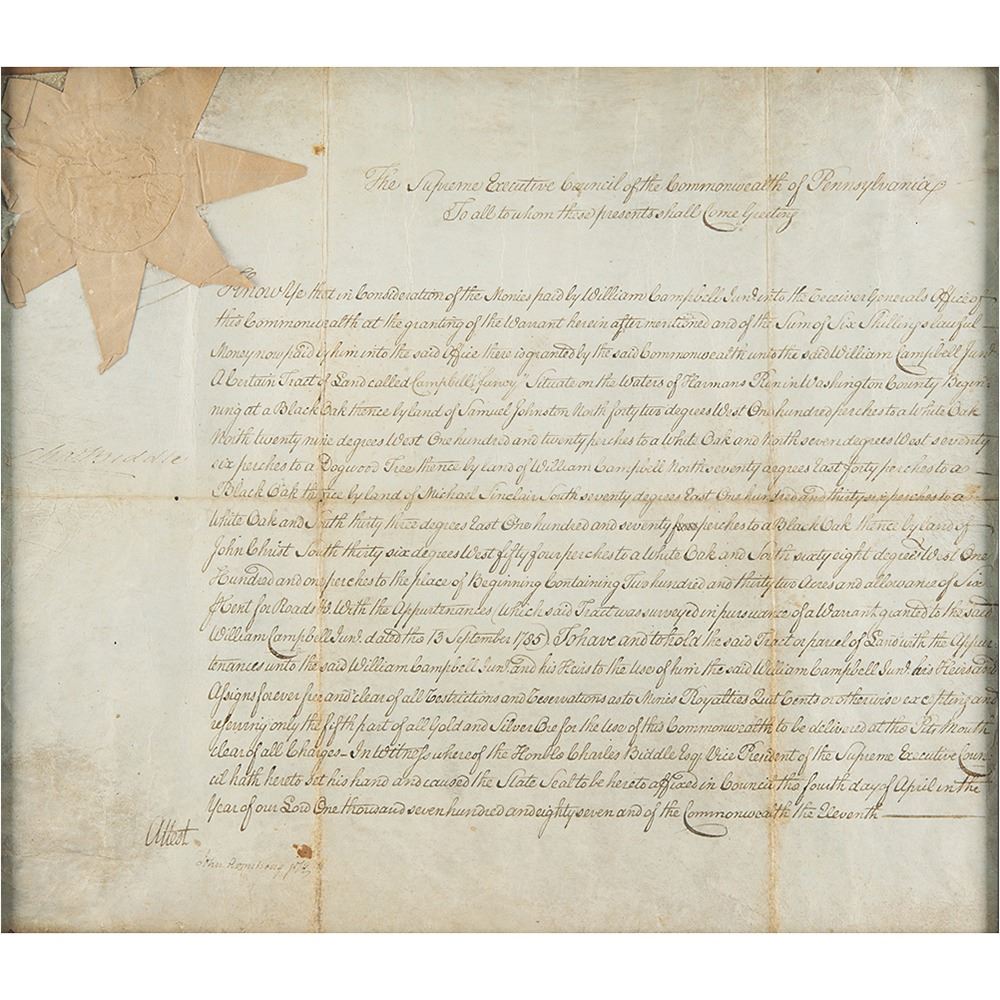 The Supreme Executive Council of the Commonwealth of Pennsylvania
To all to whom these presents shall Come Greeting
Know Ye that in Consideration of the Monies paid by William Campbell Junr. into the Receiver Generals Office of
this Commonwealth at the granting of the Warrant herein after mentioned and of the Sum of Six Shillings lawful
Money now paid by him into the said Office there is granted by the said Commonwealth unto the said William Campbell Junr.
A Certain Tract of Land called "Campbells" Situate on the Waters of Harmans Run in Washington County Begin-
ning at a Black Oak thence by land of Samuel Johnston North forty two degrees West One hundred perches to a White Oak
North twenty nine degrees West One hundred and twenty perches to a White Oak and North seven degrees West seventy
Chas Biddle
six perches to a Dogwood Tree thence by land of William Campbell North seventy degrees East forty perches to a
Black Oak thence by land of Michael Sinclair South seventy degrees East One hundred and thirty six perches to a
White Oak and South thirty three degrees East One hundred and seventy perches to a Black Oak thence by land of
John Christ South thirty six degrees West fifty four perches to a White Oak and South sixty eight degrees West One
Hundred and one perches to the place of Beginning Containing Two hundred and thirty two Acres and allowance of Six
⅌ Cent for Roads &c. With the Appurtenances (which said Tract was surveyed in pursuance of a Warrant granted to the said
William Campbell Junr. dated the 13 September 1785) To have and to hold the said Tract or parcel of Land with the Appur
tenances unto the said William Campbell Junr. and his Heirs to the Use of him the said William Campbell Junr. his Heirs and
Assigns forever free and clear of all Restrictions and Reservations as to Mines Royalties Quit Rents or otherwise excepting and
reserving only the fifth part of all Gold and Silver Ore for the Use of this Commonwealth to be delivered at the Pits Mouth
clear of all Charges – In Witness whereof the Honble Charles Biddle Esqr. Vice President of the Supreme Executive Coun
cil hath hereto set his hand and caused the State Seal to be hereto affixed in Council the fourth day of April in the
Year of our Lord One thousand seven hundred and eighty seven and of the Commonwealth the Eleventh
Attest
John Armstrong